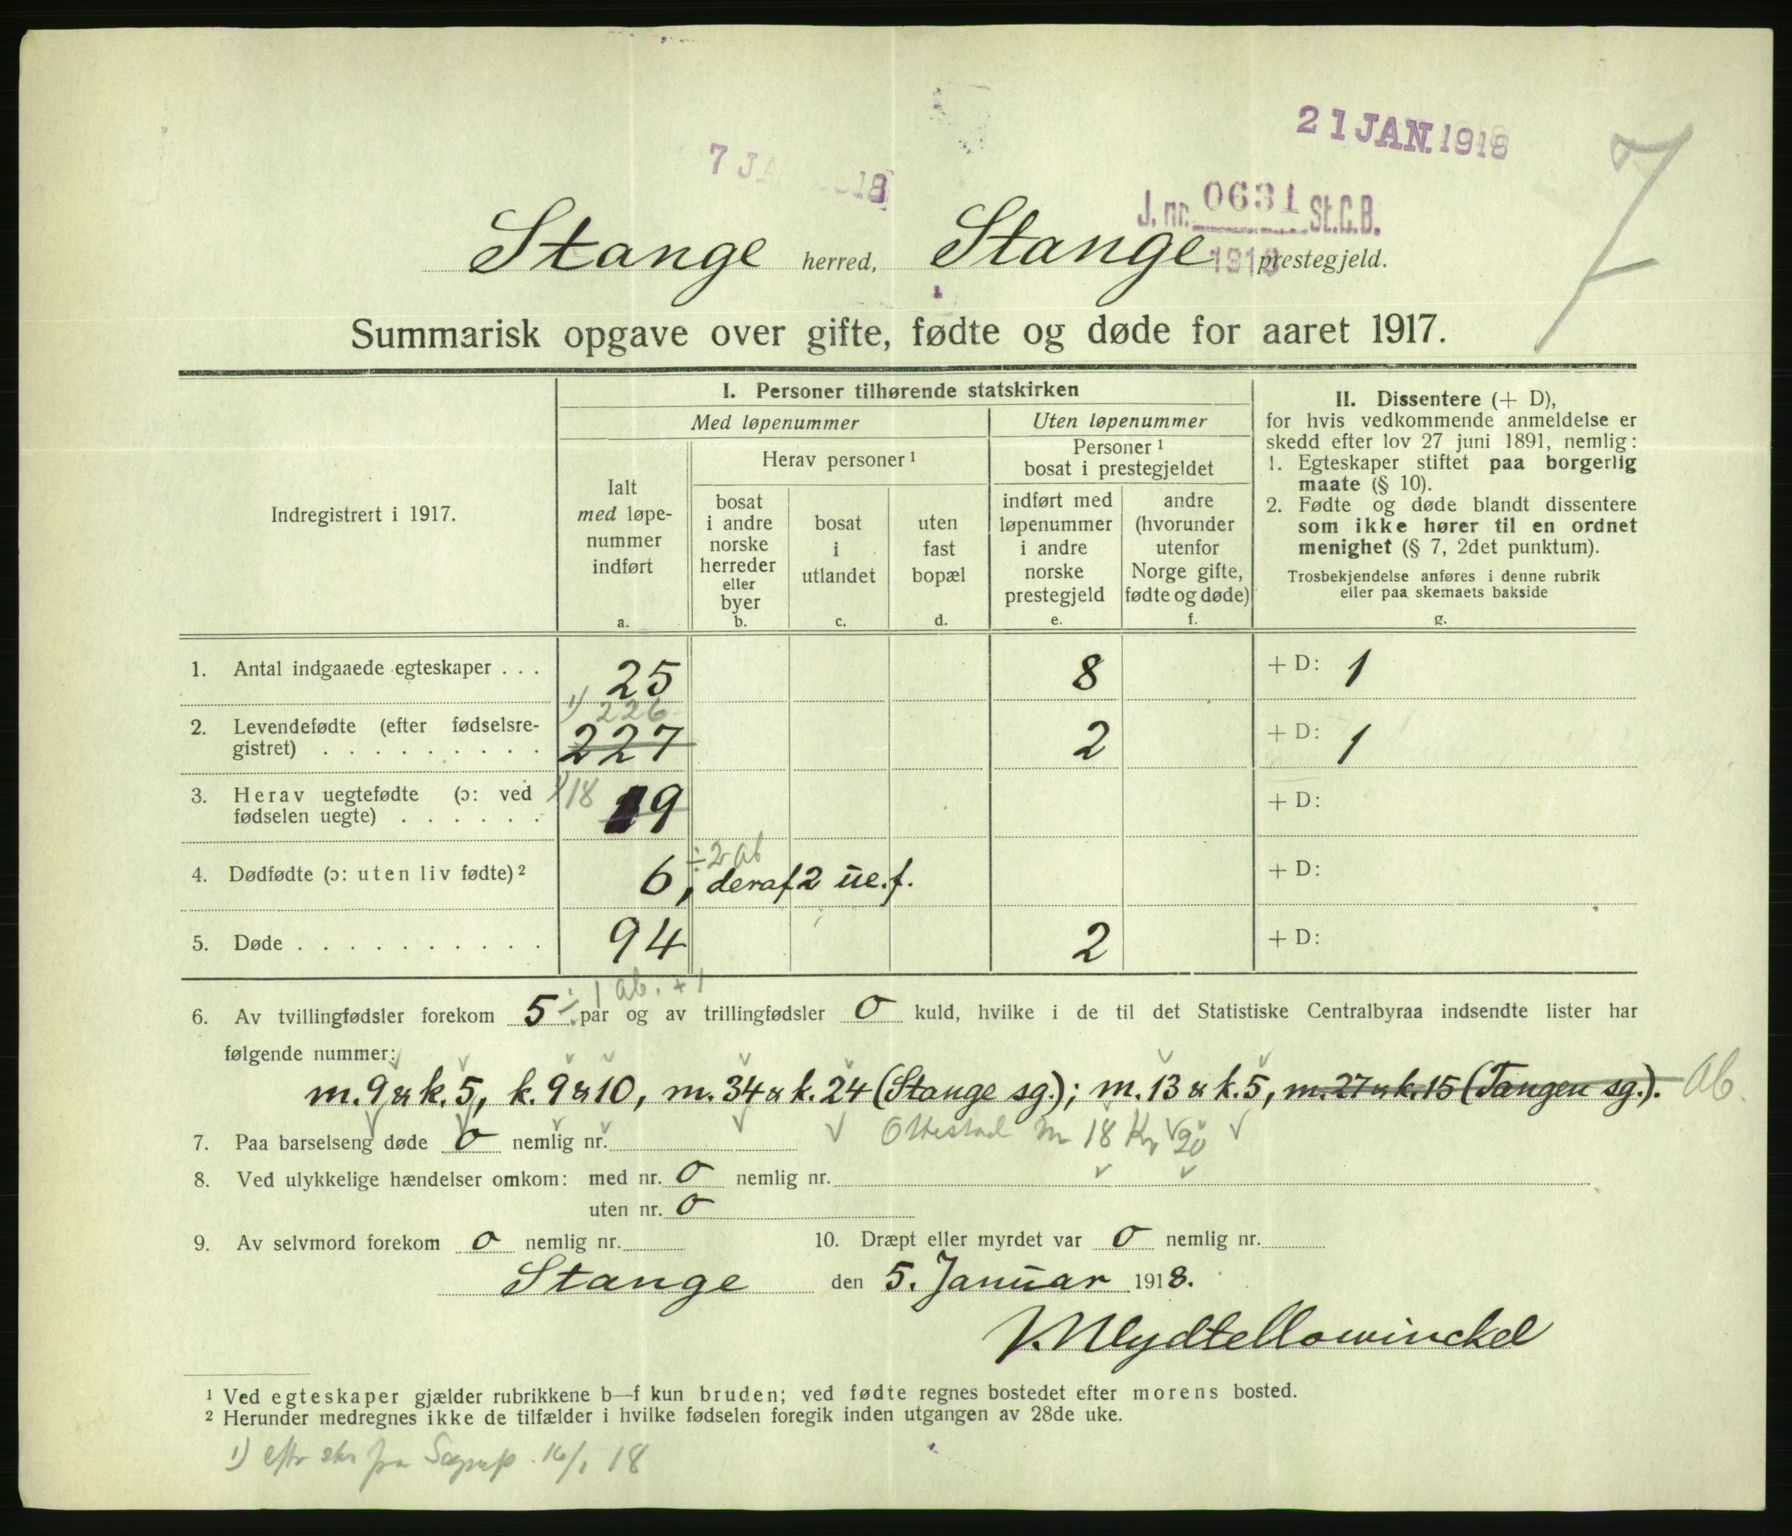 21 JAN. 1918
7 JA 18
J. nr. 0631 St.C.B.
1918
7
Stange herred, Stange prestegjeld.
Summarisk opgave over gifte, fødte og døde for aaret 1917.
Indregistrert i 1917.
I. Personer tilhørende statskirken
Med løpenummer
Uten løpenummer
Ialt
med løpe-
nummer
indført
a.
Herav personer ¹
bosat
i andre
norske
herreder
eller
byer
b.
bosat
i
utlandet
c.
uten
fast
bopæl
d.
Personer ¹
bosat i prestegjeldet
indført med
løpenummer
i andre
norske
prestegjeld
e.
andre
(hvorunder
utenfor
Norge gifte,
fødte og døde)
f.
II. Dissentere (+ D),
for hvis vedkommende anmeldelse er
skedd efter lov 27 juni 1891, nemlig:
1. Egteskaper stiftet paa borgerlig
maate (§ 10).
2. Fødte og døde blandt dissentere
som ikke hører til en ordnet
menighet (§ 7, 2det punktum).
Trosbekjendelse anføres i denne rubrik
eller paa skemaets bakside
g.
1. Antal indgaaede egteskaper . . . 25 8 + D: 1
1) 226
2. Levendefødte (efter fødselsre-
gistret) . . . . . . . . . 227 2 + D: 1
3. Herav uegtefødte (ɔ: ved
fødselen uegte) . . . . . . 1) 18 19 + D:
÷ 2 ab
4. Dødfødte (ɔ: uten liv fødte) ² 6, deraf 2 ue. f. + D:
5. Døde . . . . . . . . . . 94 2 + D:
÷ 1 ab. + 1
6. Av tvillingfødsler forekom 5 par og av trillingfødsler 0 kuld, hvilke i de til det Statistiske Centralbyraa indsendte lister har
følgende nummer:
m. 9 & k. 5, k. 9 & 10, m. 34 & k. 24 (Stange sg.); m. 13 & k. 5, m. 27 & k. 15 (Tangen sg.). ab.
Ottestad m 18 kv 20
7. Paa barselseng døde 0 nemlig nr.
8. Ved ulykkelige hændelser omkom: med nr. 0 nemlig nr.
uten nr. 0
9. Av selvmord forekom 0 nemlig nr. 10. Dræpt eller myrdet var 0 nemlig nr.
Stange den 5. Januar 1918.
¹ Ved egteskaper gjælder rubrikkene b—f kun bruden; ved fødte regnes bostedet efter morens bosted.
² Herunder medregnes ikke de tilfælder i hvilke fødselen foregik inden utgangen av 28de uke.
1) eftr skr fra Sognep. 16/1 18